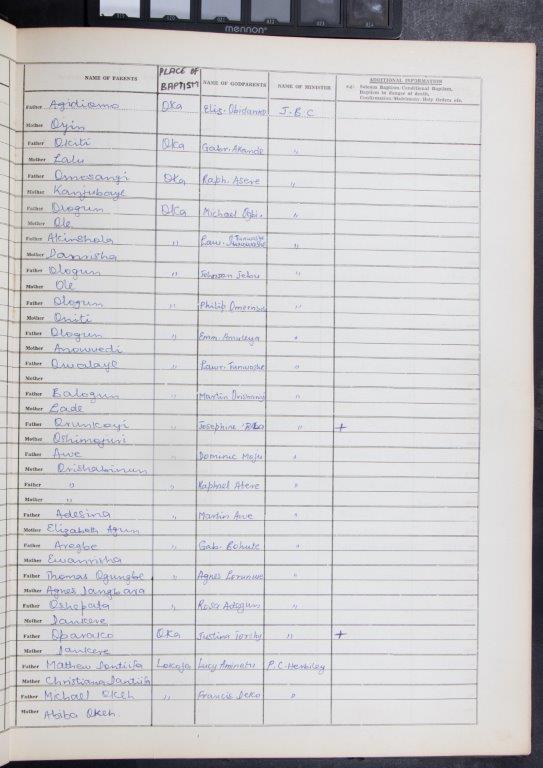 mennon
NAME OF PARENTS PLACE OF BAPTISM NAME OF GODPARENTS NAME OF MINISTER ADDITIONAL INFORMATION
Solemn Baptism, Conditional Baptism,
Baptism in danger of death,
Confirmation, Matrimony, Holy Orders etc.
Father Agidiomo Oka Eliz. Obidanko J.B.C
Mother Oyin
Father Okiti Oka Gabr. Akande "
Mother Lalu
Father Omosangi Oka Raph. Asere "
Mother Kanjubaye
Father Ologun Oka Michael Ogbi. "
Mother Ole
Father Akinshola " Law. "
Mother
Father Ologun " Johnson Jebu "
Mother Ole
Father Ologun " Philip "
Mother Oniti
Father Ologun " Emm. "
Mother
Father Owalaye " Lawr. Funwashe "
Mother
Father Balogun " Martin "
Mother Lade
Father Orunkoyi " Josephine "  +
Mother Oshimojuri
Father Awe " Dominic Moju "
Mother Orishabinun
Father " " Raphael Atere "
Mother "
Father Adesina " Martin Awe "
Mother Elizabeth Agun
Father Aregbe " Gab. "
Mother Ewanrisha
Father Thomas Ogungbe " Agnes "
Mother Agnes Jangbara
Father Oshopata " Rosa Adogun "
Mother Jankere
Father Oparako Oka Justina " +
Mother Jankere
Father Mathew Lokoja Lucy Aminatu P.C.
Mother Christiana
Father Michael Okeh " Francis "
Mother Abiba Okeh